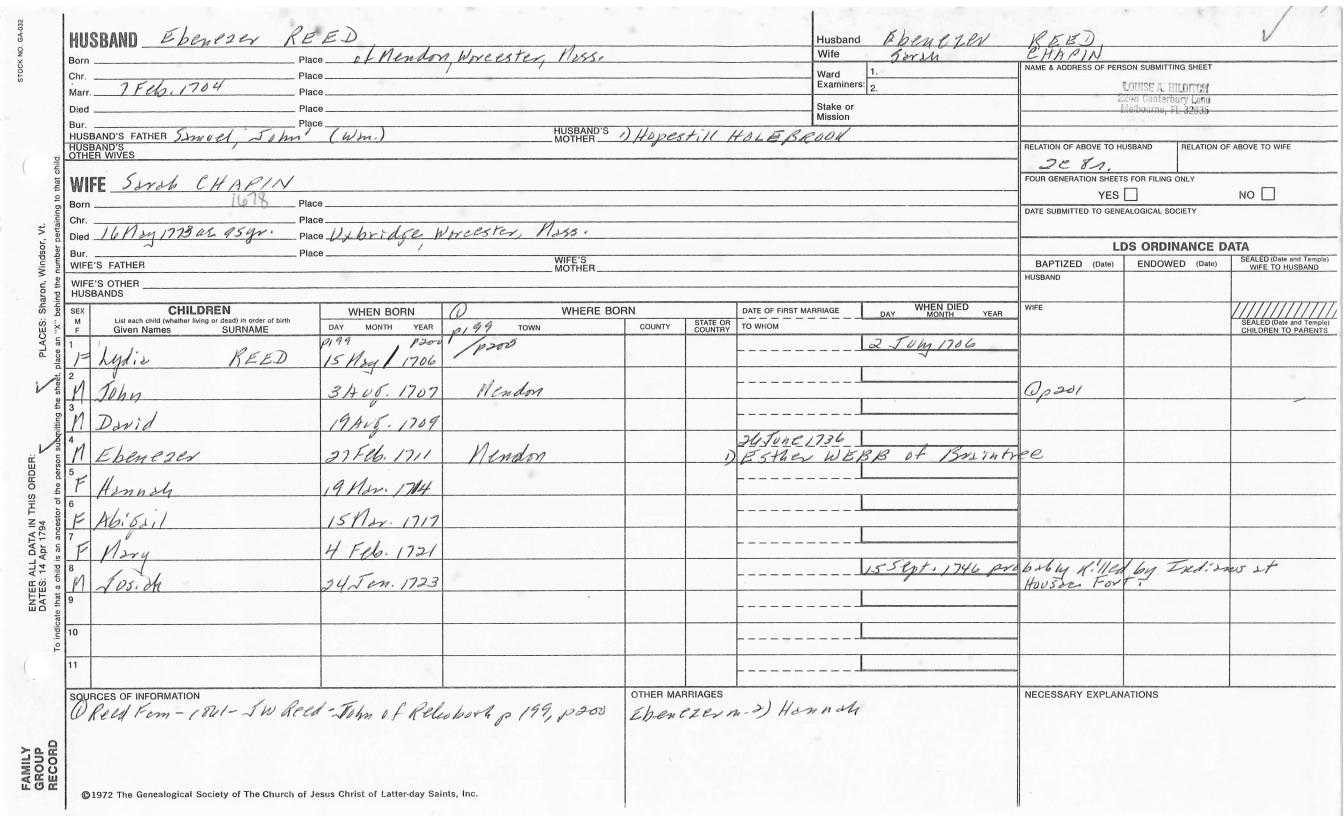 STOCK NO. GA-032
HUSBAND Ebenezer REED
Born Place of Mendon, Worcester, Mass.
Chr. Place
Marr. 7 Feb. 1704 Place
Died Place
Bur. Place
HUSBAND'S FATHER Samuel, John (Wm.) HUSBAND'S MOTHER 1) Hopestill HOLEBROOK
HUSBAND'S OTHER WIVES
Husband Ebenezer REED
Wife Sarah CHAPIN
Ward Examiners: 1.
2.
Stake or Mission
NAME & ADDRESS OF PERSON SUBMITTING SHEET
LOUISE A. HILDITCH
Canterbury Lane
Melbourne, FL 32935
RELATION OF ABOVE TO HUSBAND RELATION OF ABOVE TO WIFE
2c 8r.
FOUR GENERATION SHEETS FOR FILING ONLY
YES NO
DATE SUBMITTED TO GENEALOGICAL SOCIETY
WIFE Sarah CHAPIN
1678
Born Place
Chr. Place
Died 16 May 1773 ae 95yr. Place Uxbridge, Worcester, Mass.
Bur. Place
WIFE'S FATHER WIFE'S MOTHER
WIFE'S OTHER HUSBANDS
LDS ORDINANCE DATA
BAPTIZED (Date) ENDOWED (Date) SEALED (Date and Temple) WIFE TO HUSBAND
HUSBAND
WIFE
SEALED (Date and Temple) CHILDREN TO PARENTS
SEX M F CHILDREN WHEN BORN ① WHERE BORN DATE OF FIRST MARRIAGE WHEN DIED
List each child (whether living or dead) in order of birth
Given Names SURNAME DAY MONTH YEAR p199 TOWN COUNTY STATE OR COUNTRY TO WHOM DAY MONTH YEAR
p199 p200 / p200
1 F Lydia REED 15 May / 1706 2 July 1706
2 M John 3 Aug. 1707 Mendon ① p201
3 M David 19 Aug. 1709
4 M Ebenezer 27 Feb. 1711 Mendon 26 June 1736
1) Esther WEBB of Braintree
5 F Hannah 19 Mar. 1714
6 F Abigail 15 Mar. 1717
7 F Mary 4 Feb. 1721
8 M Josiah 24 Jan. 1723 15 Sept. 1746 probably killed by Indians at
Housac Fort.
9
10
11
SOURCES OF INFORMATION
① Reed Fam - 1861 - JW Reed - John of Rehoboth p 199, p200
OTHER MARRIAGES
Ebenezer m. 2) Hannah
NECESSARY EXPLANATIONS
©1972 The Genealogical Society of The Church of Jesus Christ of Latter-day Saints, Inc.
PLACES: Sharon, Windsor, Vt.
ENTER ALL DATA IN THIS ORDER:
DATES: 14 Apr 1794
To indicate that a child is an ancestor of the person submitting the sheet, place an "X" behind the number pertaining to that child.
FAMILY
GROUP
RECORD